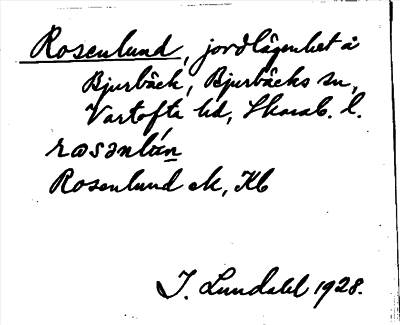 Rosenlund, jordlägenhet å
Bjurbäck, Bjurbäcks sn,
Vartofta hd, Skarab. l.
rωsənlún
Rosenlund ek, Kb
I. Lundahl 1928.